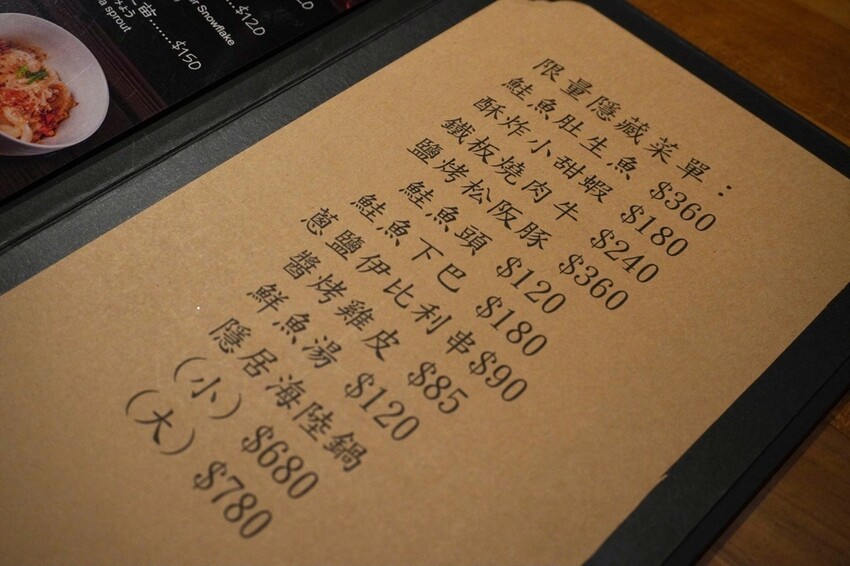 $120
r Snowflake
苗......$150
a sprout
限量隱藏菜單：
鮭魚肚生魚 $360
酥炸小甜蝦 $180
鐵板燒肉牛 $240
鹽烤松阪豚 $360
鮭魚頭 $120
鮭魚下巴 $180
蔥鹽伊比利串$90
醬烤雞皮 $85
鮮魚湯 $120
隱居海陸鍋
（小）$680
（大）$780